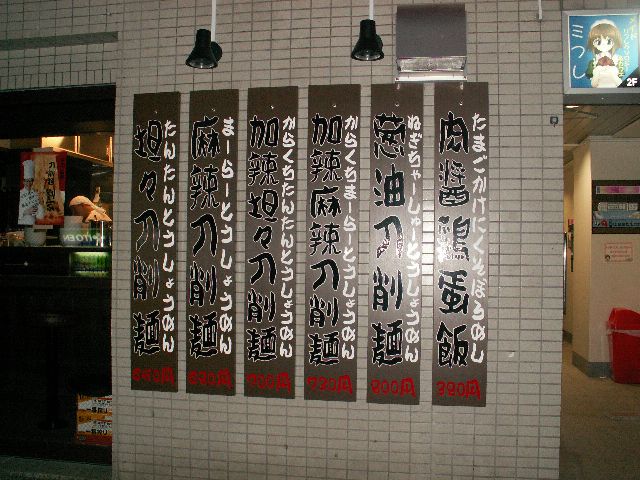 たまごかけにくそぼろめし
肉醤鶏蛋飯
380円
ねぎちゃーしゅーとうしょうめん
葱油刀削麺
800円
からくちまーらーとうしょうめん
加辣麻辣刀削麺
730円
からくちたんたんとうしょうめん
加辣坦々刀削麺
700円
まーらーとうしょうめん
麻辣刀削麺
680円
たんたんとうしょうめん
坦々刀削麺
ミつし
2F